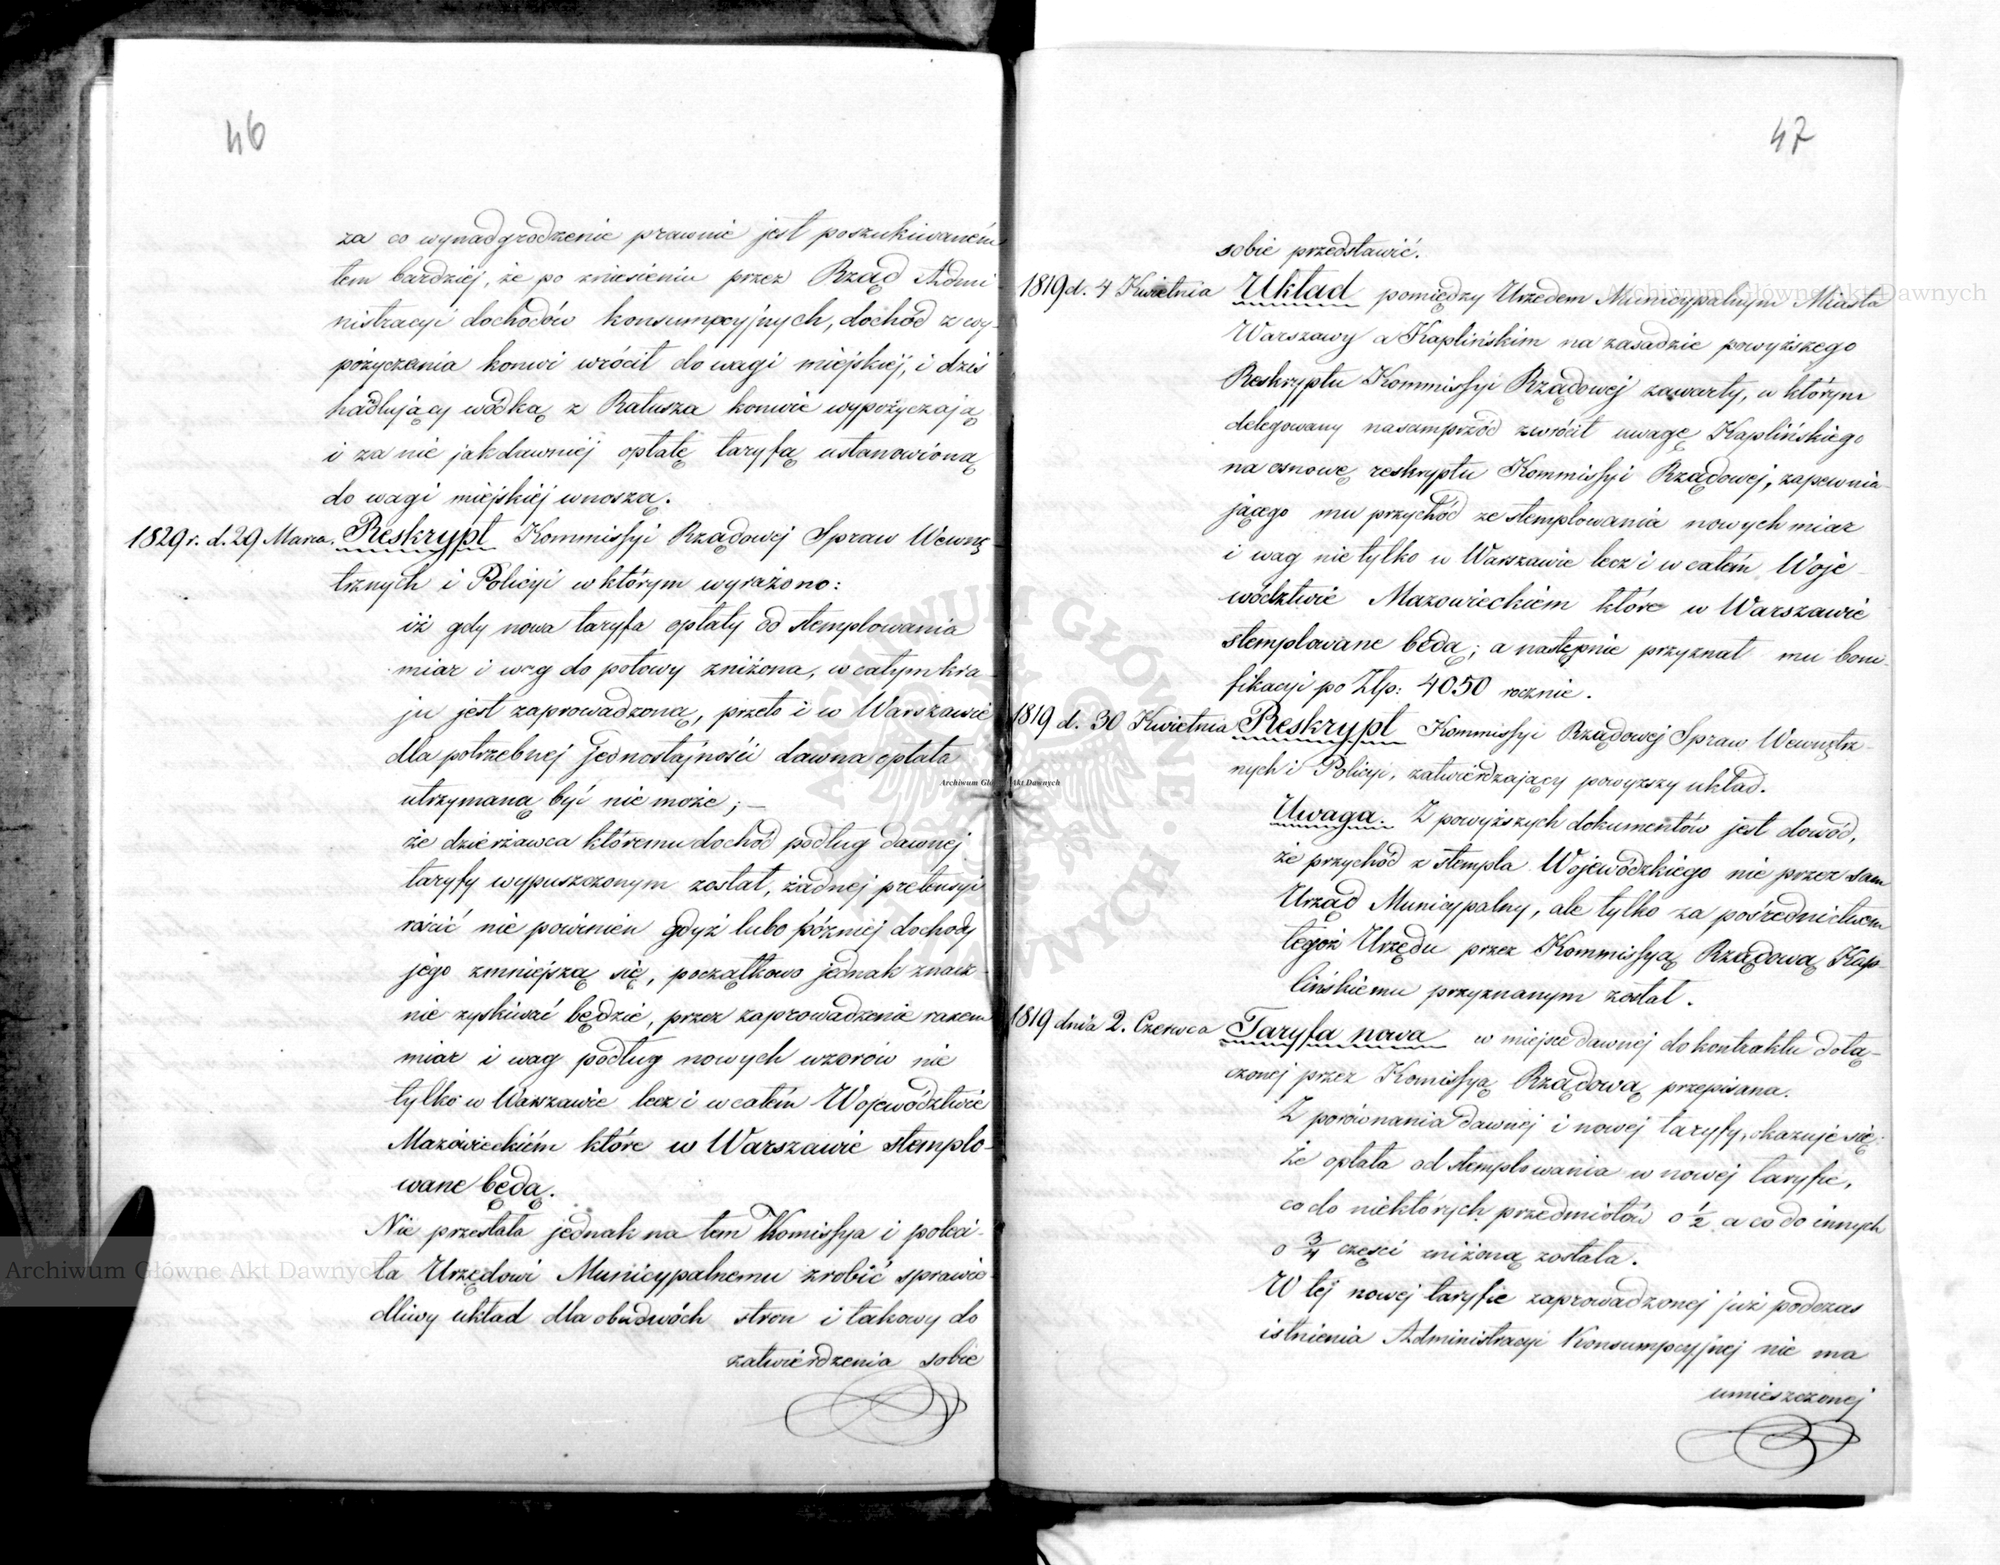 46
za co wynadgrodzenie prawnie jest poszukiwaném
tem bardziej, że po zniesieniu przez Rząd Admi-
nistracyi dochodów konsumpcyjnych, dochód z wy-
pożyczania konwi wrócił do wagi miejskiej, i dziś
hadlujący wódką z Ratusza konwie wypożyczają
i za nie jak dawniej opłatę taryfą ustanowioną
do wagi miejskiej wnoszą.
1829 r. d. 29 Marca. Reskrypt Kommissyi Rządowej Spraw Wewnę-
trznych i Policyi w którym wyrażono:
iż gdy nowa taryfa opłaty od stemplowania
miar i wag do połowy zniżona, w całym kra-
ju jest zaprowadzoną, przeto i w Warszawie
dla potrzebnej jednostajności dawna opłata
utrzymaną być nie może; —
że dzierżawca któremu dochód podług dawnej
taryfy wypuszczonym został, żadnej pretensyi
rościć nie powinien gdyż lubo później dochody
jego zmniejszą się, początkowo jednak znacz-
nie zyskiwać będzie, przez zaprowadzenie razem
miar i wag podług nowych wzorów nie
tylko w Warszawie lecz i w całém Województwie
Mazowieckiém które w Warszawie stemplo-
wane będą.
Nie przestała jednak na tem Komissya i poleci-
ła Urzędowi Municypalnemu zrobić sprawie-
dliwy układ dla obudwóch stron i takowy do
zatwierdzenia sobie
47
sobie przedstawić.
1819 d. 4 Kwietnia Układ pomiędzy Urzędem Municypalnym Miasta
Warszawy a Kaplińskim na zasadzie powyższego
Reskryptu Kommissyi Rządowej zawarty, w którym
delegowany nasamprzód zwrócił uwagę Kaplińskiego
na osnowę reskryptu Kommissyi Rządowej, zapewnia-
jącego mu przychód ze stemplowania nowych miar
i wag nie tylko w Warszawie lecz i w całém Woje-
wództwie Mazowieckiem które w Warszawie
stemplowane będą; a następnie przyznał mu boni-
fikacyi po Złp: 4050 rocznie.
1819 d. 30 Kwietnia Reskrypt Kommissyi Rządowej Spraw Wewnętrz-
nych i Policyi, zatwierdzający powyższy układ.
Uwaga. Z powyższych dokumentów jest dowód,
że przychód z stempla Wojewódzkiego nie przez sam
Urząd Municypalny, ale tylko za pośrednictwem
tegoż Urzędu przez Kommissyą Rządową Kap-
lińskiemu przyznanym został.
1819 dnia 2. Czerwca Taryfa nowa w miejsce dawnej do kontraktu dołą-
czonej przez Komissyą Rządową przepisana.
Z porównania dawnej i nowej taryfy, okazuje się:
że opłata od stemplowania w nowej taryfie,
co do niektórych przedmiotów o 1/2 a co do innych
o 3/4 części zniżoną została.
W tej nowej taryfie zaprowadzonej już podczas
istnienia Administracyi Konsumpcyjnej nie ma
umieszczonej
Archiwum Główne Akt Dawnych
Archiwum Główne Akt Dawnych
Archiwum Główne Akt Dawnych